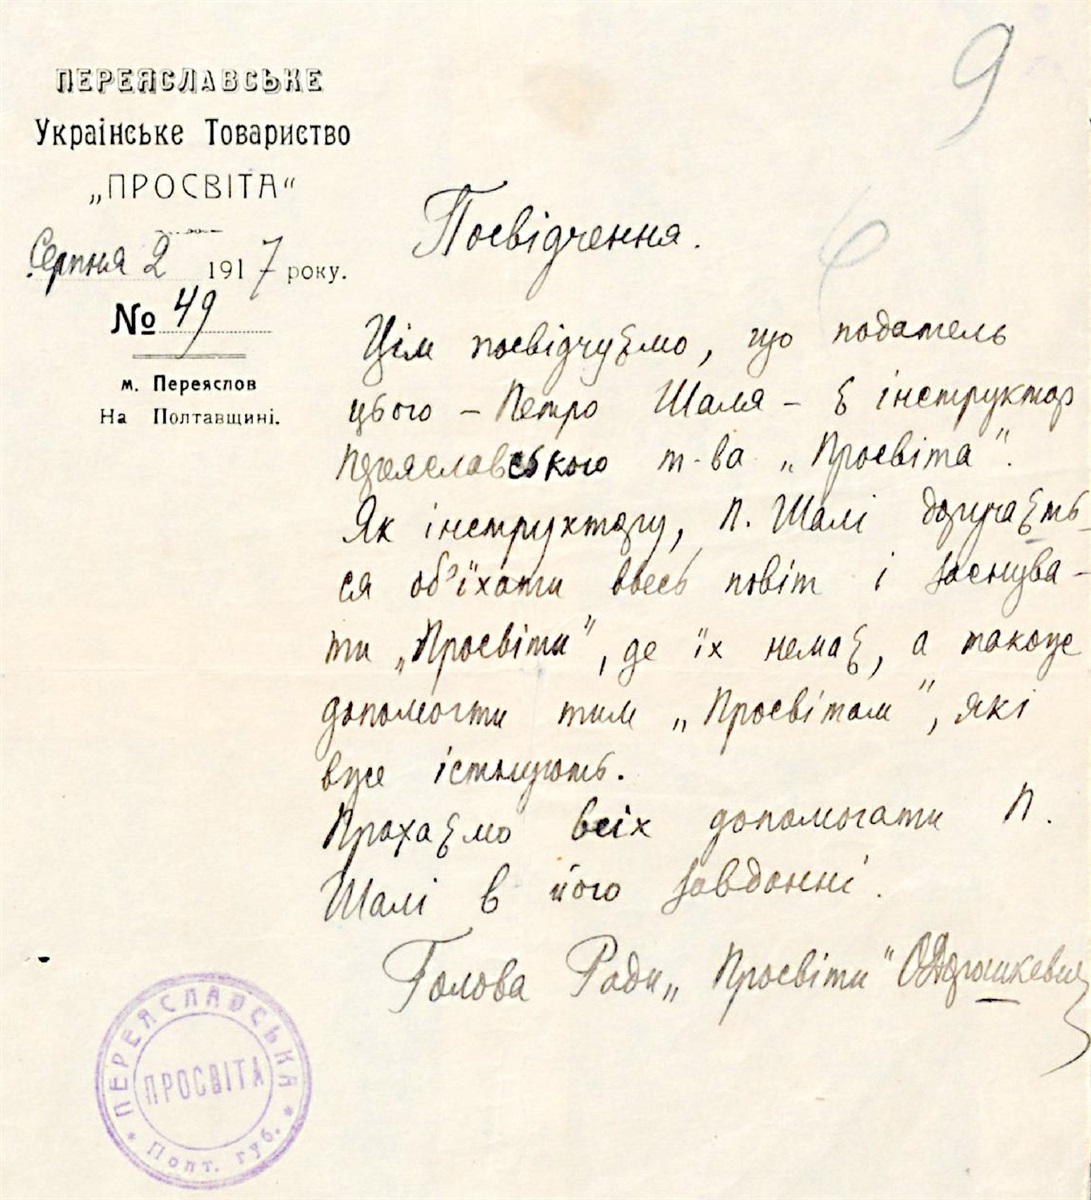 9
ПЕРЕЯСЛАВСЬКЕ
Украінське Товариство
„ПРОСВІТА“
Серпня 2 1917 року.
№ 49
м. Переяслов
На Полтавщині.
6
Посвідчення.
Цім посвідчуємо, що податель
цього – Петро Шаля – є інструктор
Переяславського т-ва „Просвіта".
Як інструктору, П. Шалі доручаєть
ся об'їхати ввесь повіт і заснува-
ти „Просвіти", де їх немає, а також
допомогти тим „Просвітам", які
вже істнують.
Прохаємо всіх допомагати П.
Шалі в його завданні.
Голова Ради „Просвіти"
ПЕРЕЯСЛАВСЬКА
ПРОСВІТА
* Полт. губ. *